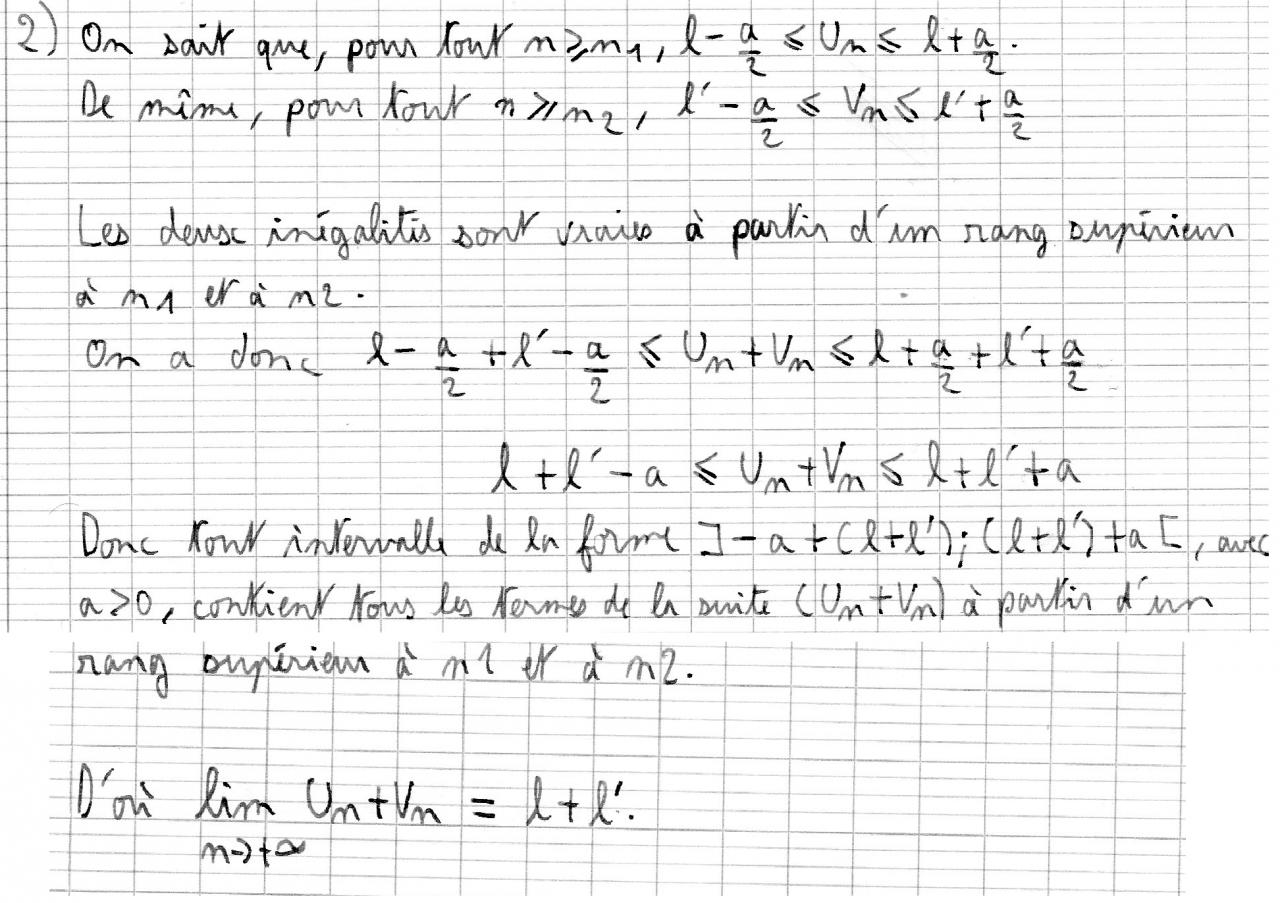 2) On sait que, pour tout n ≥ n₁, l - a/2 ≤ Un ≤ l + a/2.
De même, pour tout n ≥ n₂, l' - a/2 ≤ Vn ≤ l' + a/2
Les deux inégalités sont vraies à partir d'un rang supérieur
à n1 et à n2.
On a donc l - a/2 + l' - a/2 ≤ Un + Vn ≤ l + a/2 + l' + a/2
l + l' - a ≤ Un + Vn ≤ l + l' + a
Donc tout intervalle de la forme ] - a + (l + l') ; (l + l') + a [, avec
a > 0, contient tous les termes de la suite (Un + Vn) à partir d'un
rang supérieur à n1 et à n2.
D'où lim Un + Vn = l + l'.
n → +∞